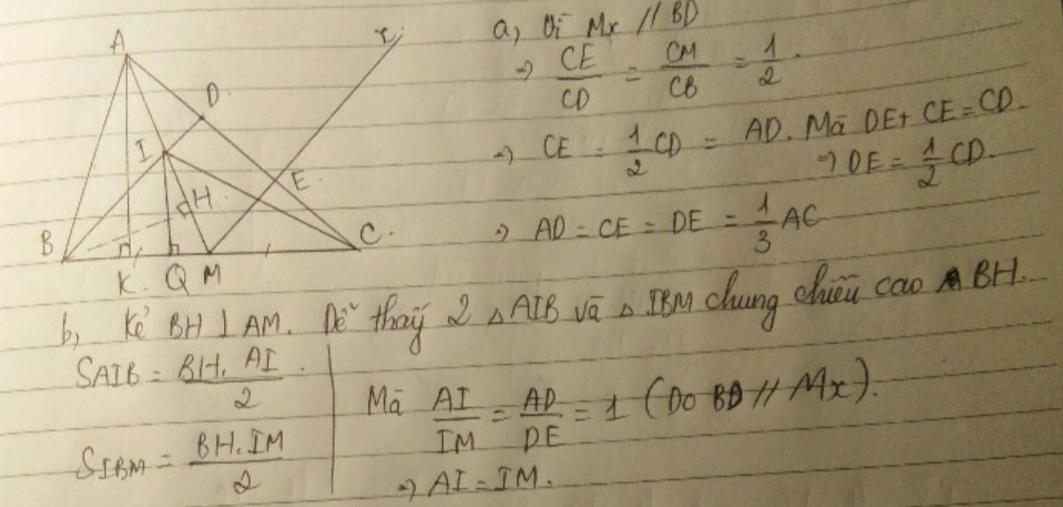 a, Vì Mx // BD
⇒ CE/CD = CM/CB = 1/2.
⇒ CE = 1/2 CD = AD. Mã DE + CE = CD.
⇒ DE = 1/2 CD.
⇒ AD = CE = DE = 1/3 AC
A
x
D
I
H
E
B
K. Q M
C.
b, Kẻ BH ⊥ AM. Dễ thấy 2 △AIB và △IBM chung chiều cao BH.
SAIB = BH. AI / 2.
SIBM = BH. IM / 2
Mã AI/IM = AD/DE = 1 (Do BD // Mx).
⇒ AI = IM.